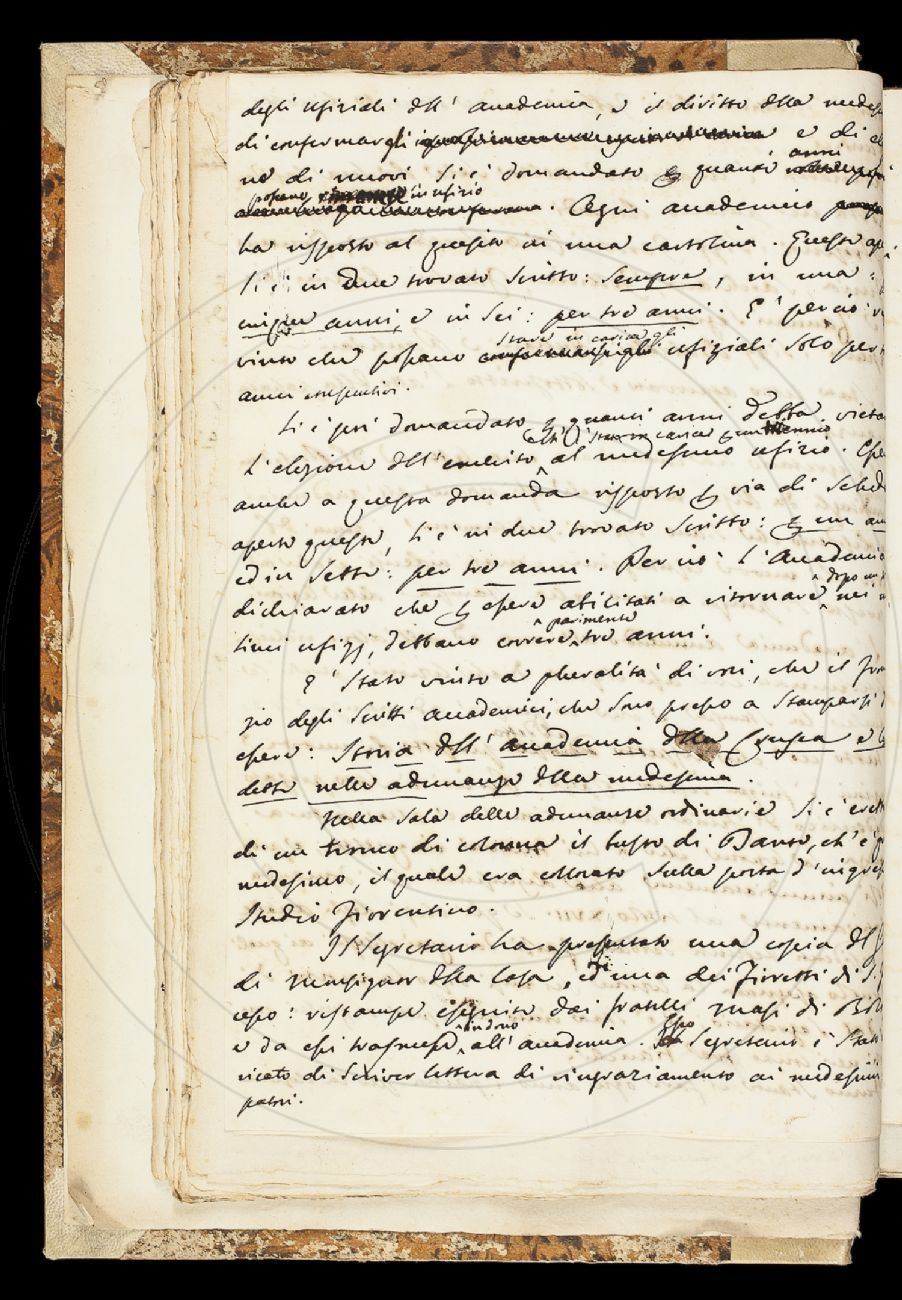 degli ufiziali dell' accademia, e il diritto della medes
di confermargli e di el
ne di nuovi si è domandato p quanti anni
possano in ufizio
. Ogni accademico
ha risposto al quesito in una cartolina. Queste ape
si è in due trovato scritto: sempre, in una:
cinque anni, e in sei: per tre anni. E' perciò
stare in carica gli
vinto che possano ufiziali solo per
anni consecutivi.
Si è poi domandato p quanti anni debba vieta
l'elezione dell'emerito al medesimo ufizio. Esse
anche a questa domanda risposto p via di schede
aperte queste, si è in due trovato scritto: p un an
ed in sette: per tre anni. Perciò l'Accademia
dopo un
dichiarato che p essere abilitati a ritornare nei
parimente
timi ufizj, debbano correre tre anni.
E' stato vinto a pluralità di voti, che il fron
zio degli scritti accademici, che sono presso a stamparsi
essere: Storia dell' accademia della Crusca e
dette nelle adunanze della medesima.
Nella sala delle adunanze ordinarie si è erett
di un tronco di colonna il busto di Dante, ch'è
medesimo, il quale era collocato sulla porta d'ingres
Studio Fiorentino.
Il Segretario ha presentato una copia del
di Monsignor della Casa, ed una dei Fioretti di S.
cesco: ristampe eseguite dai fratelli Masi di
in dono Esso
e da essi trasmesse all'accademia. Segretario è stat
ricato di scriver lettera di ringraziamento ai medesimi
patori.